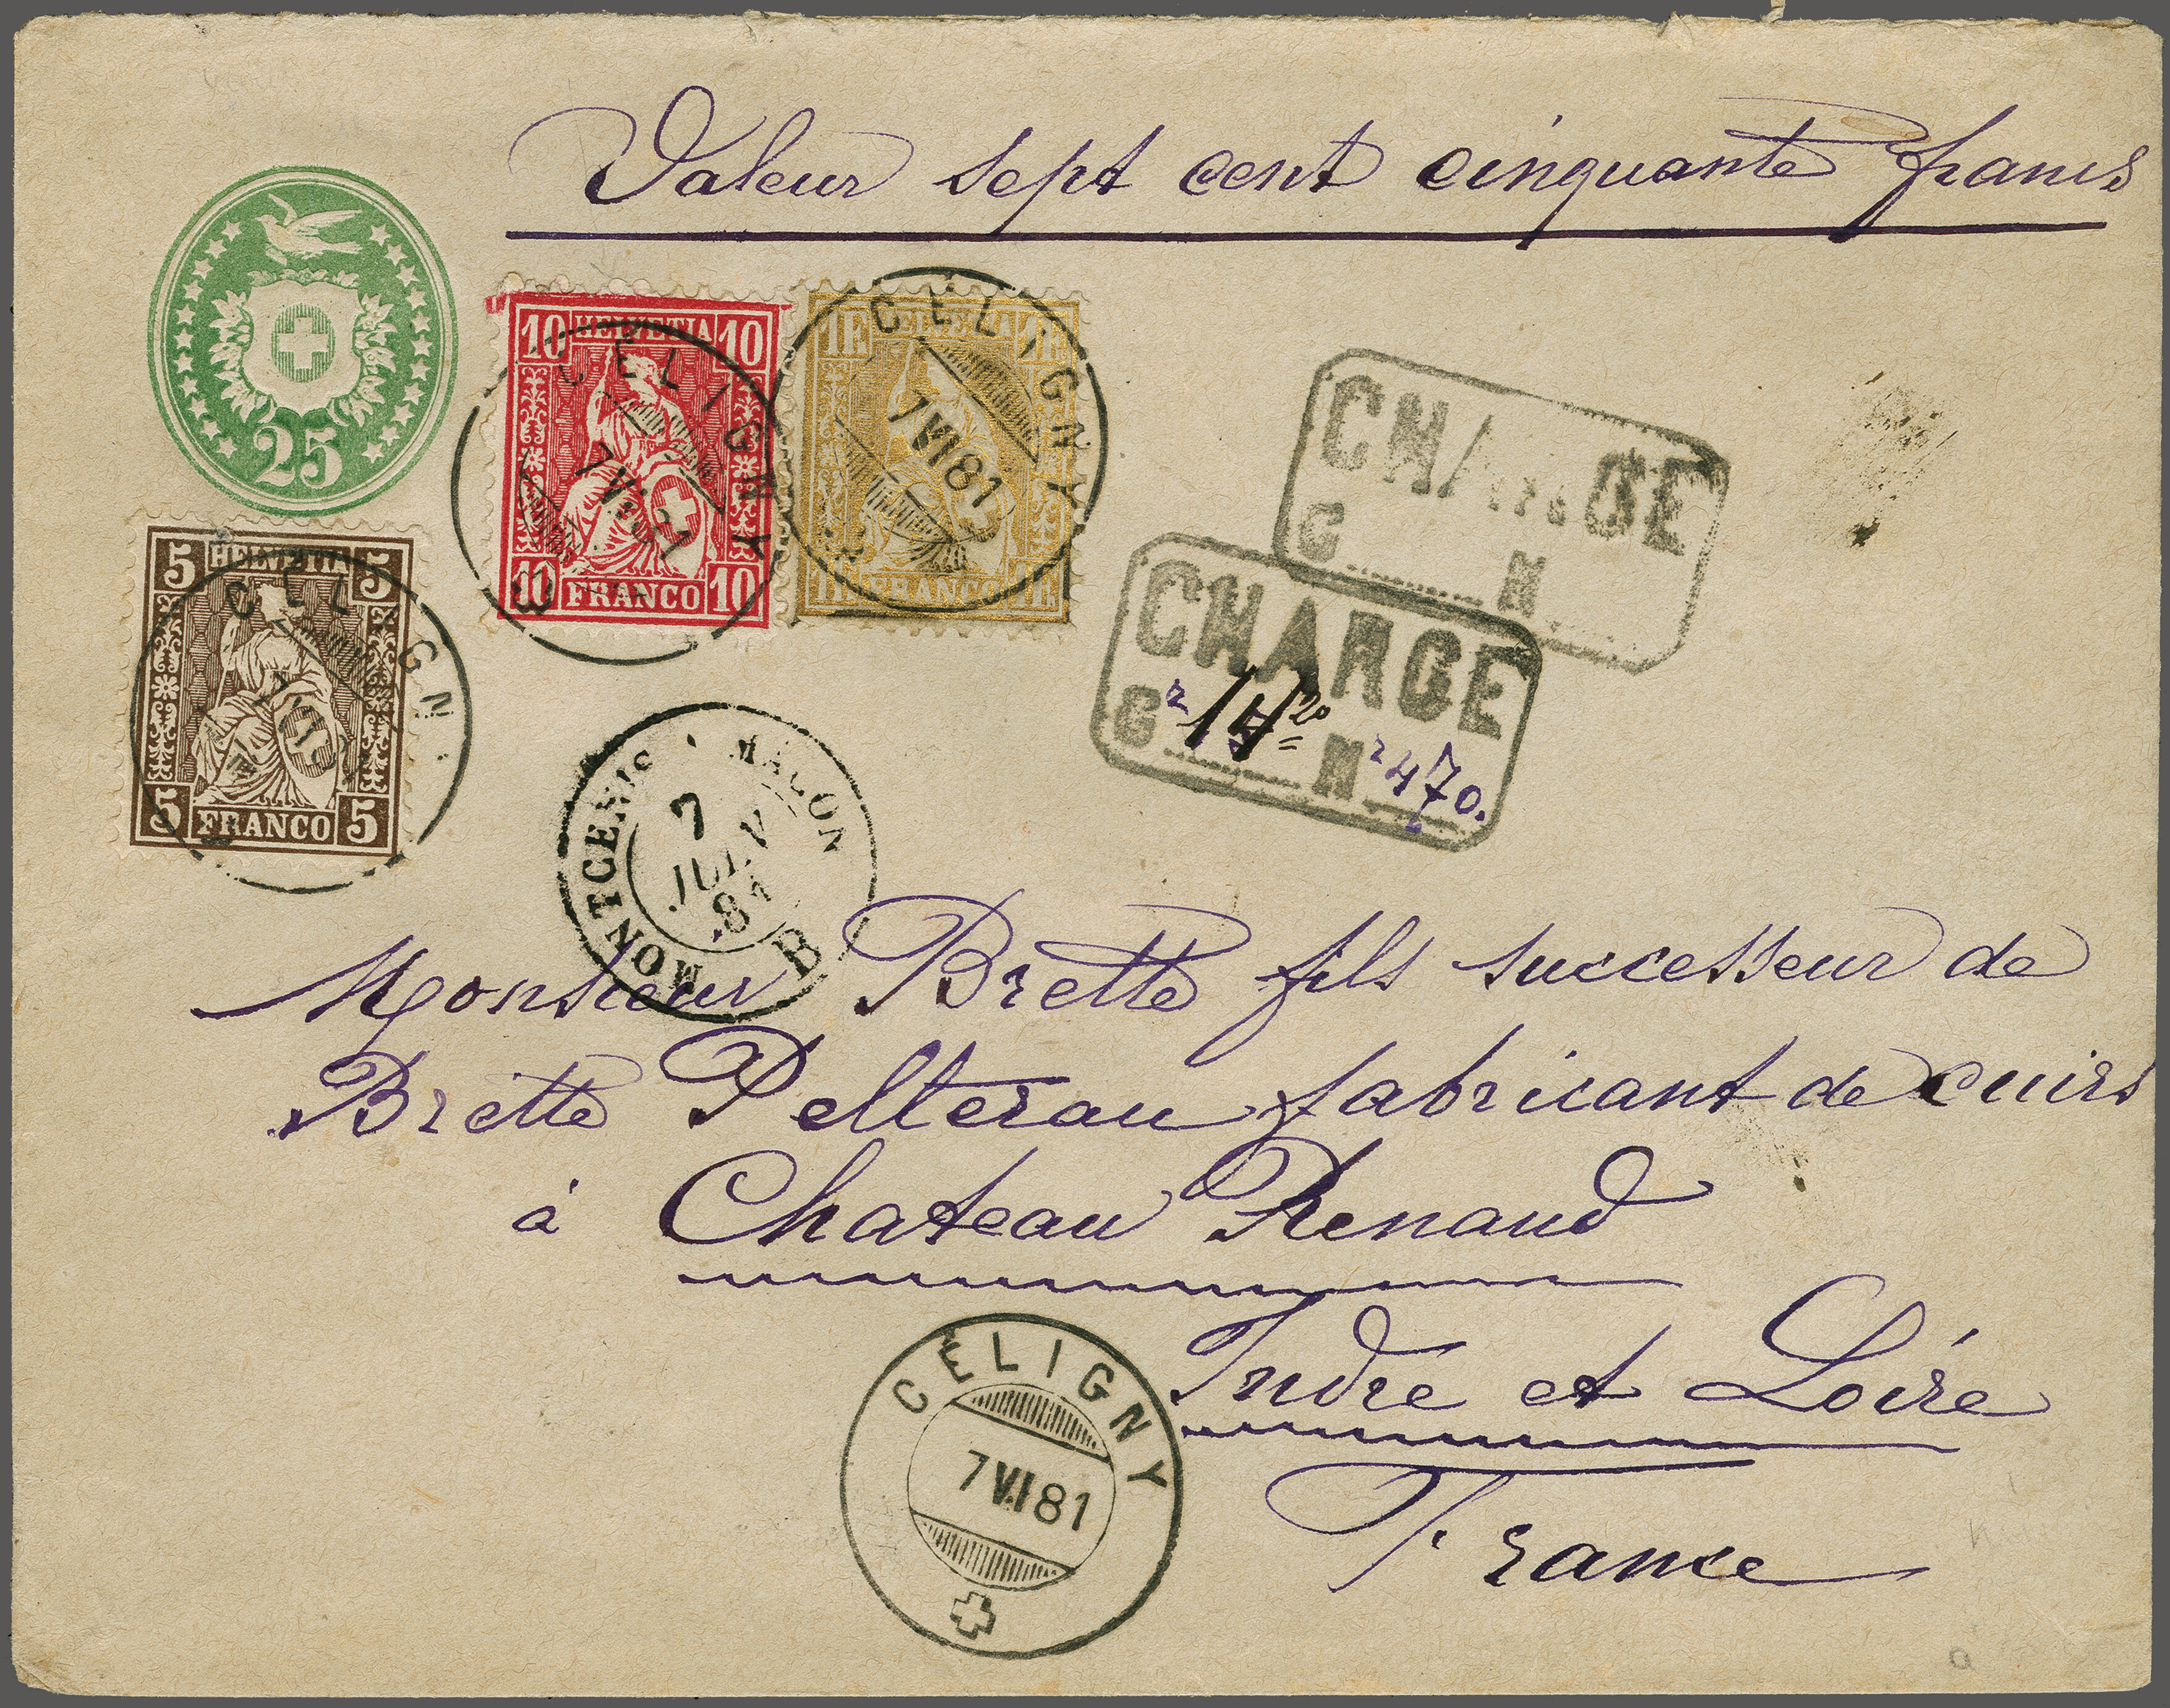 Valeur sept cent cinquante francs
25
10 HELVETIA 10
10 FRANCO 10
CÉLIGNY
7 VI 81
1F HELVETIA 1F
1F FRANCO 1F
CÉLIGNY
7 VI 81
5 HELVETIA 5
5 FRANCO 5
CÉLIGNY
CHARGE
G N
CHARGE
G 14 20 N 2470.
MACON
MONTCENIS
7
JUIN
81
B
Monsieur Brette fils successeur de
Brette Pelterau fabricant de cuirs
à Chateau Renaud
Indre et Loire
France
CÉLIGNY
7 VI 81